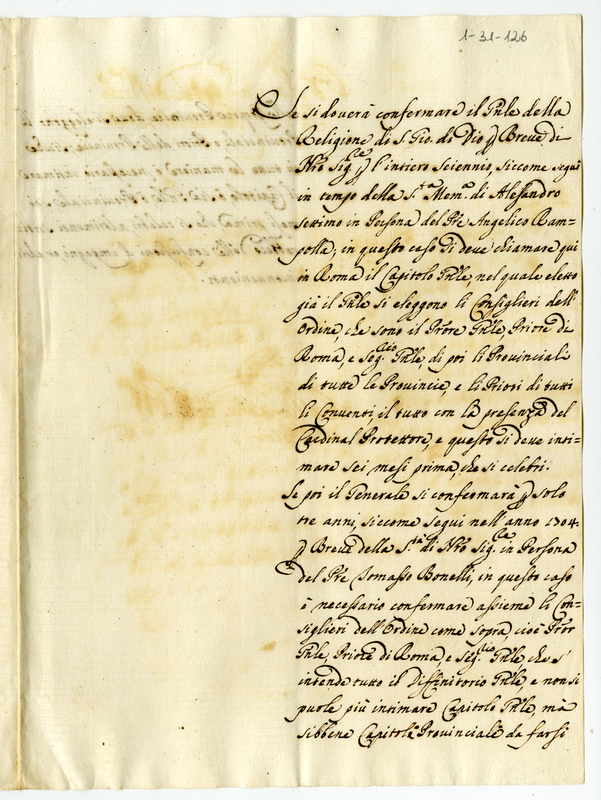 1-31-126
Se si doverà confermare il Gñle della
Religione di S. Gio: di Dio p Breve di
Nrõ Sig.re p l'intiero Seiennio, siccome seguì
in tempo della S.ta Mem.a di Alesandro
settimo in Persona del Pre Angelico Ram=
polla; in questo caso si deve chiamare qui
in Roma il Capitolo Gñle, nel quale eletto
già il Gñle si eleggono li Consiglieri dell'
Ordine, che sono il Prõre Gñle, Priore di
Roma, e Seg.rio Gñle, di poi li Provinciali
di tutte le Provincie, e li Priori di tutti
li Conventi, il tutto con la presenza del
Cardinal Protettore, e questo si deve inti=
mare sei mesi prima, che si celebri.
Se poi il Generale si confermarà p solo
tre anni, siccome seguì nell'anno 1704.
p Breve della S.tà di Nrõ Sig.re in Persona
del Pre Tomasso Bonelli, in questo caso
è necessario confermare assieme li Con=
siglieri dell'Ordine come sopra, cioè Prõr
Gñle, Priore di Roma, e Seg.rio Gñle, che s'
intende tutto il Diffinitorio Gñle, e non si
puole più intimare Capitolo Gñle, mà
sibbene Capitoli Provinciali da farsi